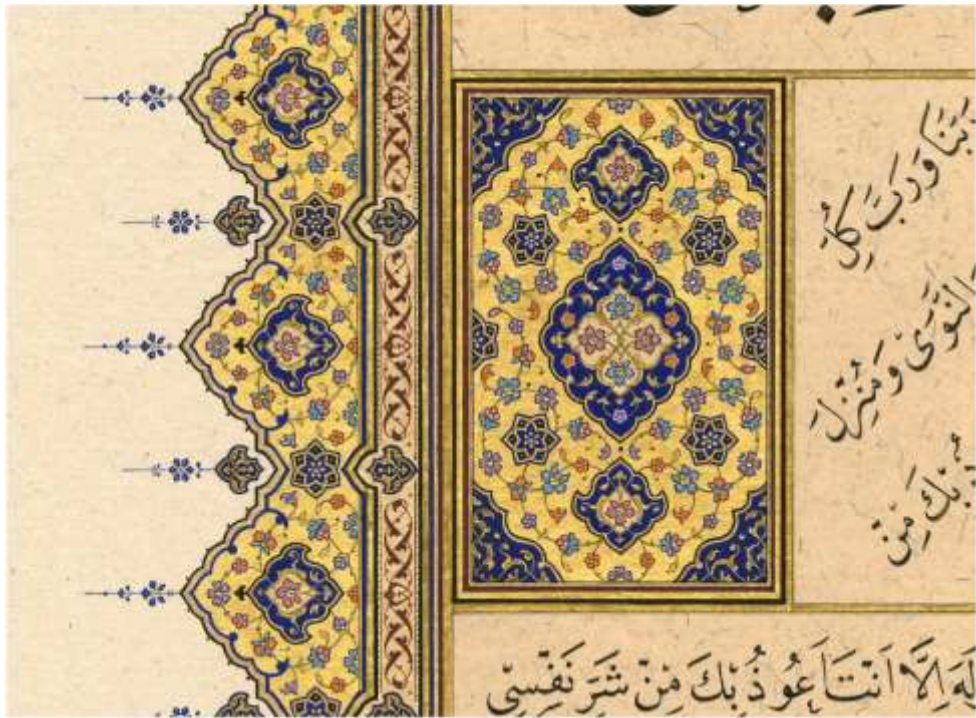 وَرَبَّ كُلِّ
النَّوَىٰ وَمُنْزِلَ
بِكَ مِنْ
اِلَّا اَنْتَ اَعُوذُ بِكَ مِنْ شَرِّ نَفْسِي